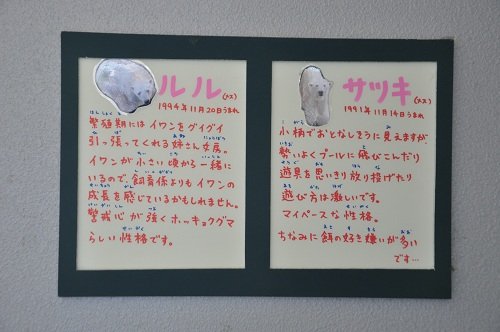 ルル(メス)
1994年11月20日うまれ
繁殖期にはイワンをグイグイ
引っ張ってくれる姉さん女房。
イワンが小さい頃から一緒に
いるので、飼育係よりもイワンの
成長を感じているかもしれません。
警戒心が強くホッキョクグマ
らしい性格です。
サツキ(メス)
1991年11月14日うまれ
小柄でおとなしそうに見えますが
勢いよくプールに飛びこんだり
遊具を思いきり放り投げたり
遊び方は激しいです。
マイペースな性格。
ちなみに餌の好き嫌いが多い
です…